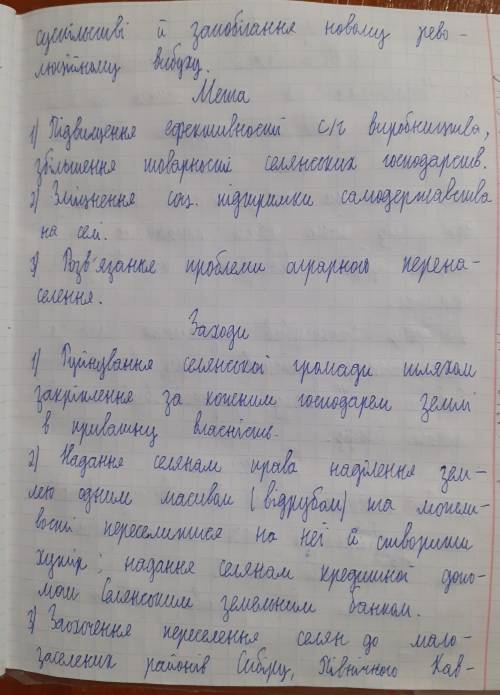 суспільстві й запобігання новому рево-
люційному вибуху.
Мета
1) Підвищення ефективності с/г виробництва,
збільшення товарності селянських господарств.
2) Зміцнення соц. підтримки самодержавства
на селі.
3) Розв'язання проблеми аграрного перена-
селення.
Заходи
1) Руйнування селянської громади шляхом
закріплення за кожним господарем землі
в приватну власність.
2) Надання селянам права наділення зем-
лею одним масивом (відрубом) та можли-
вості переселитися на неї й створити
хутір; надання селянам кредитної допо-
моги Селянським земельним банком.
3) Заохочення переселення селян до мало-
заселених районів Сибіру, Північного Кав-